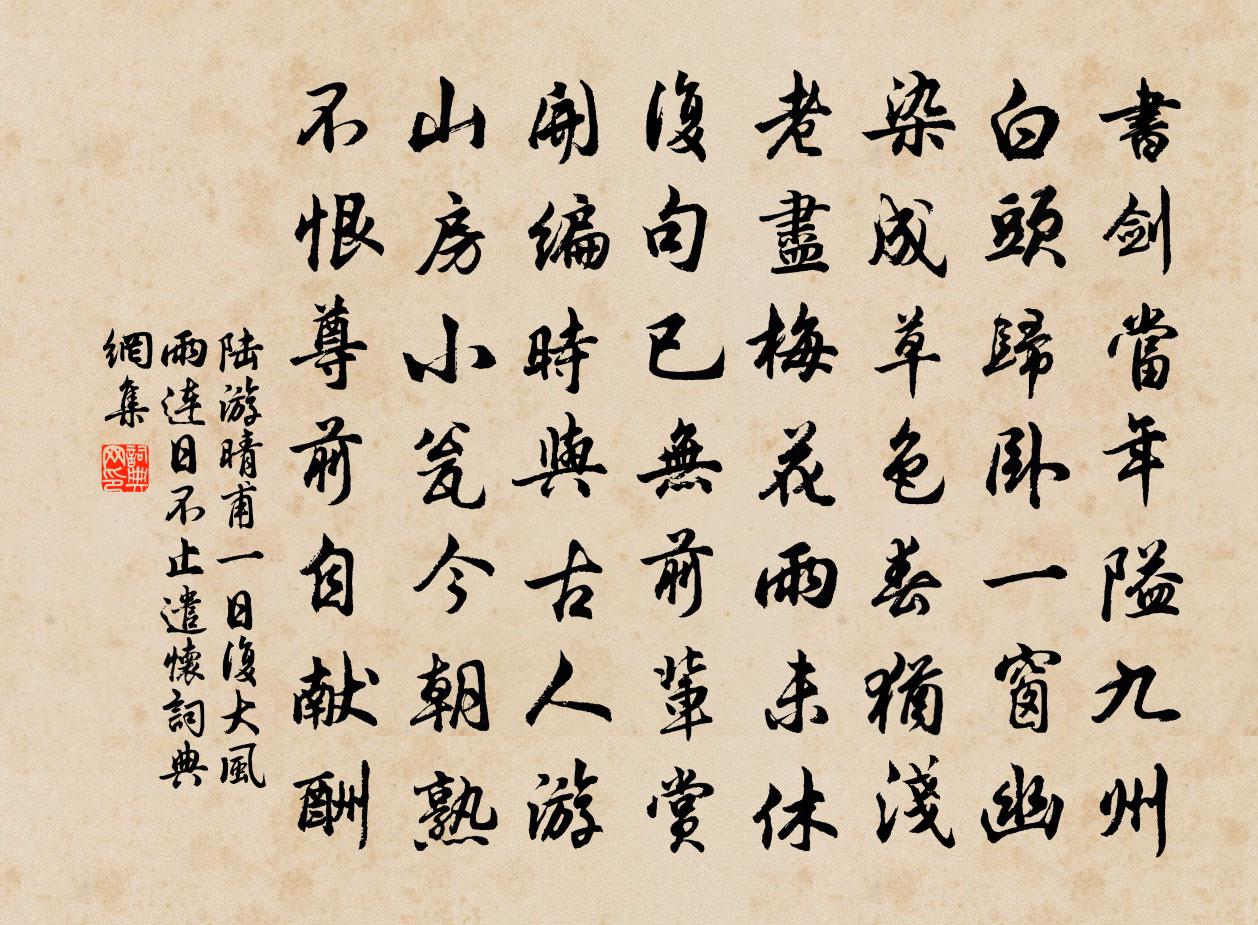 書剑當年隘九州
白頭歸卧一窗幽
染成草色春猶淺
老盡梅花雨未休
復句已無前輩賞
開编時與古人游
山房小瓮今朝熟
不恨尊前自献酬
陆游晴甫一日復大風
雨連日不止遣懷詞典
網集
詞典網印